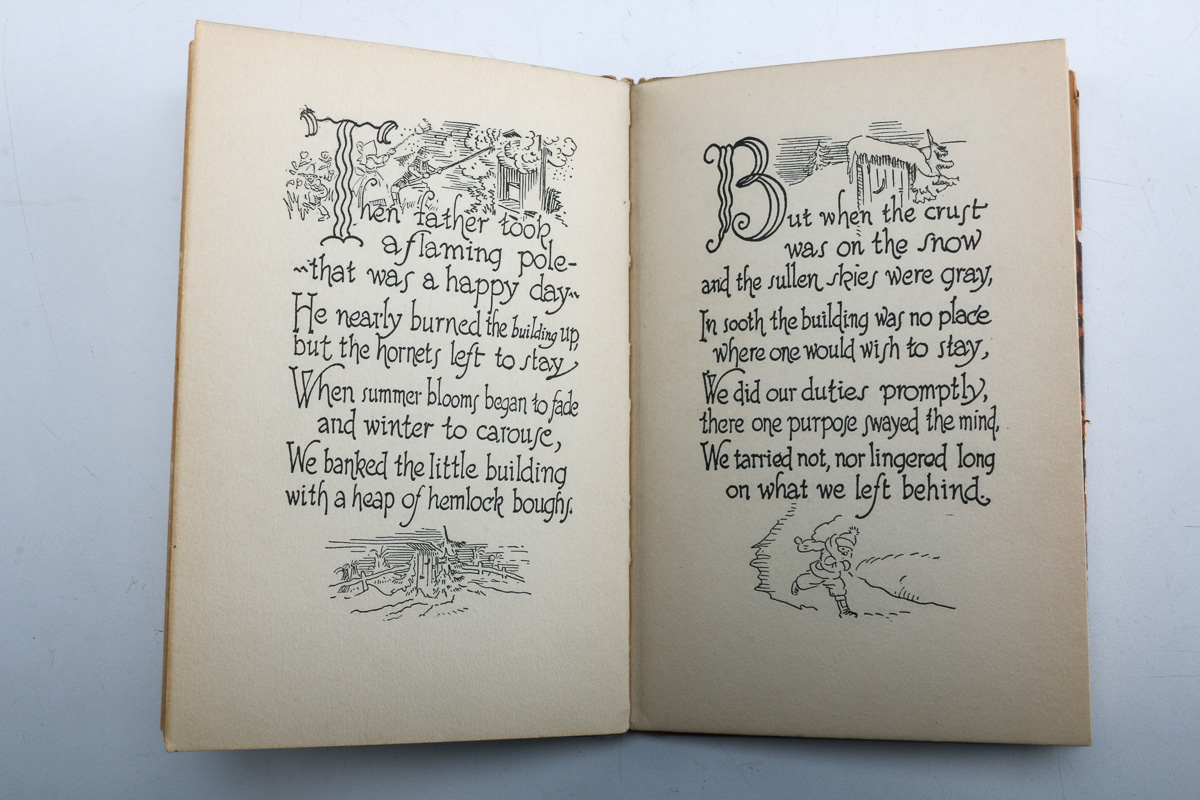 Then father took
a flaming pole-
~that was a happy day~
He nearly burned the building up,
but the hornets left to stay,
When summer blooms began to fade
and winter to carouse,
We banked the little building
with a heap of hemlock boughs.
But when the crust
was on the snow
and the sullen skies were gray,
In sooth the building was no place
where one would wish to stay,
We did our duties promptly,
there one purpose swayed the mind,
We tarried not, nor lingered long
on what we left behind.